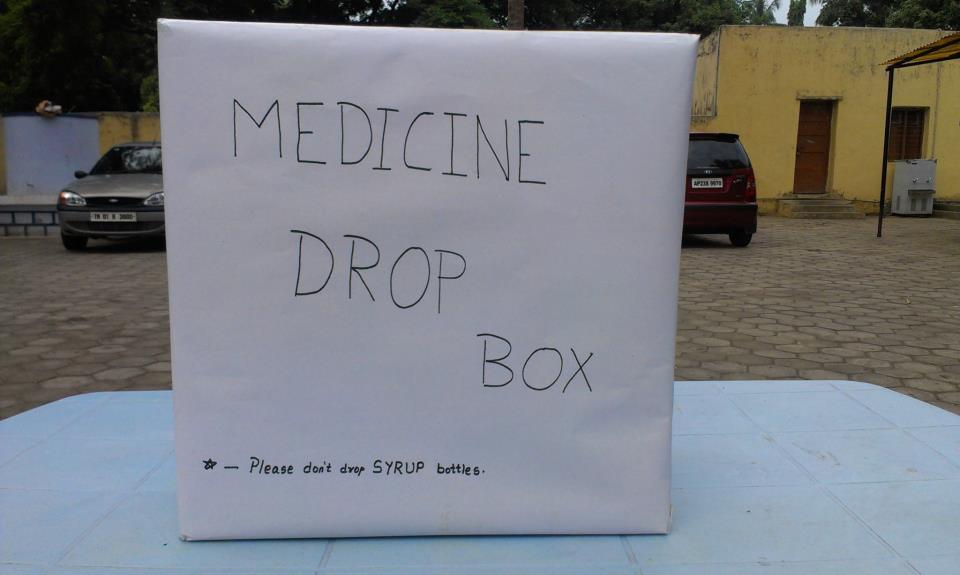 MEDICINE
DROP
BOX
☆ — Please don't drop SYRUP bottles.
AP23S 9970